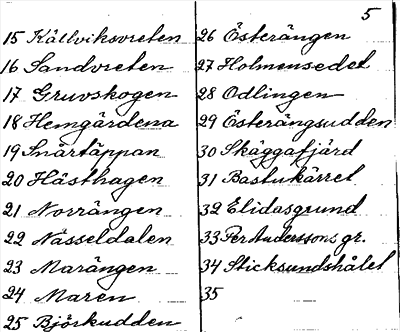 5
15 Källviksvreten
16 Sandvreten
17 Gruvskogen
18 Hemgärdena
19 Snärtäppan
20 Hästhagen
21 Norrängen
22 Nässeldalen
23 Marängen
24 Maren
25 Björkudden
26 Österängen
27 Holmensedet
28 Odlingen
29 Österängsudden
30 Skäggafjärd
31 Bastukärret
32 Elidasgrund
33 Per Anderssons gr.
34 Sticksundshålet
35